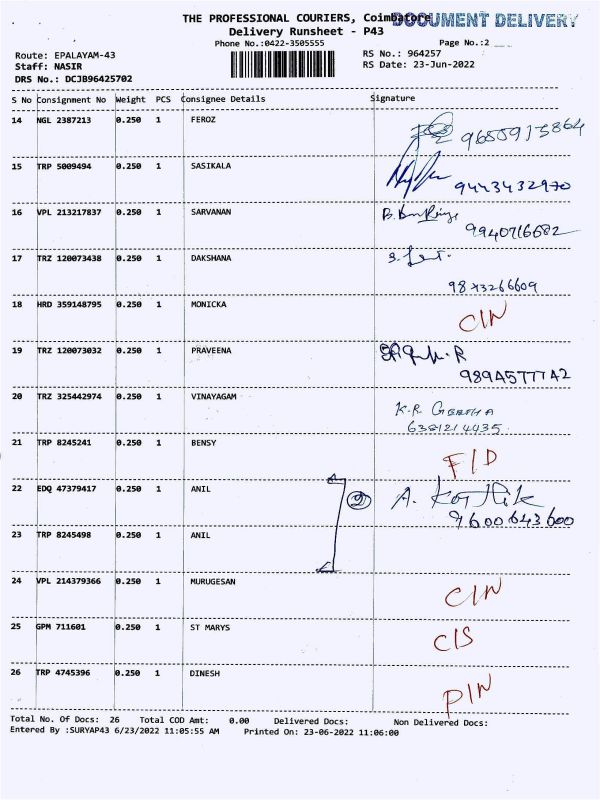 THE PROFESSIONAL COURIERS, Coimbatore
DOCUMENT DELIVERY
Delivery Runsheet - P43
Phone No.:0422-3505555
Page No.:2
Route: EPALAYAM-43
RS No.: 964257
Staff: NASIR
RS Date: 23-Jun-2022
DRS No.: DCJB96425702
S No Consignment No Weight PCS Consignee Details Signature
14 NGL 2387213 0.250 1 FEROZ
9655913864
15 TRP 5009494 0.250 1 SASIKALA
9443432970
16 VPL 213217837 0.250 1 SARVANAN
9940716682
17 TRZ 120073438 0.250 1 DAKSHANA
9843266609
18 HRD 359148795 0.250 1 MONICKA
C/N
19 TRZ 120073032 0.250 1 PRAVEENA
9894577742
20 TRZ 325442974 0.250 1 VINAYAGAM
K.R GEETHA
6381214435
21 TRP 8245241 0.250 1 BENSY
F/D
22 EDQ 47379417 0.250 1 ANIL
2 A. Karthik
9600643600
23 TRP 8245498 0.250 1 ANIL
24 VPL 214379366 0.250 1 MURUGESAN
C/N
25 GPM 711601 0.250 1 ST MARYS
C/S
26 TRP 4745396 0.250 1 DINESH
P/N
Total No. Of Docs: 26 Total COD Amt: 0.00 Delivered Docs: Non Delivered Docs:
Entered By :SURYAP43 6/23/2022 11:05:55 AM Printed On: 23-06-2022 11:06:00